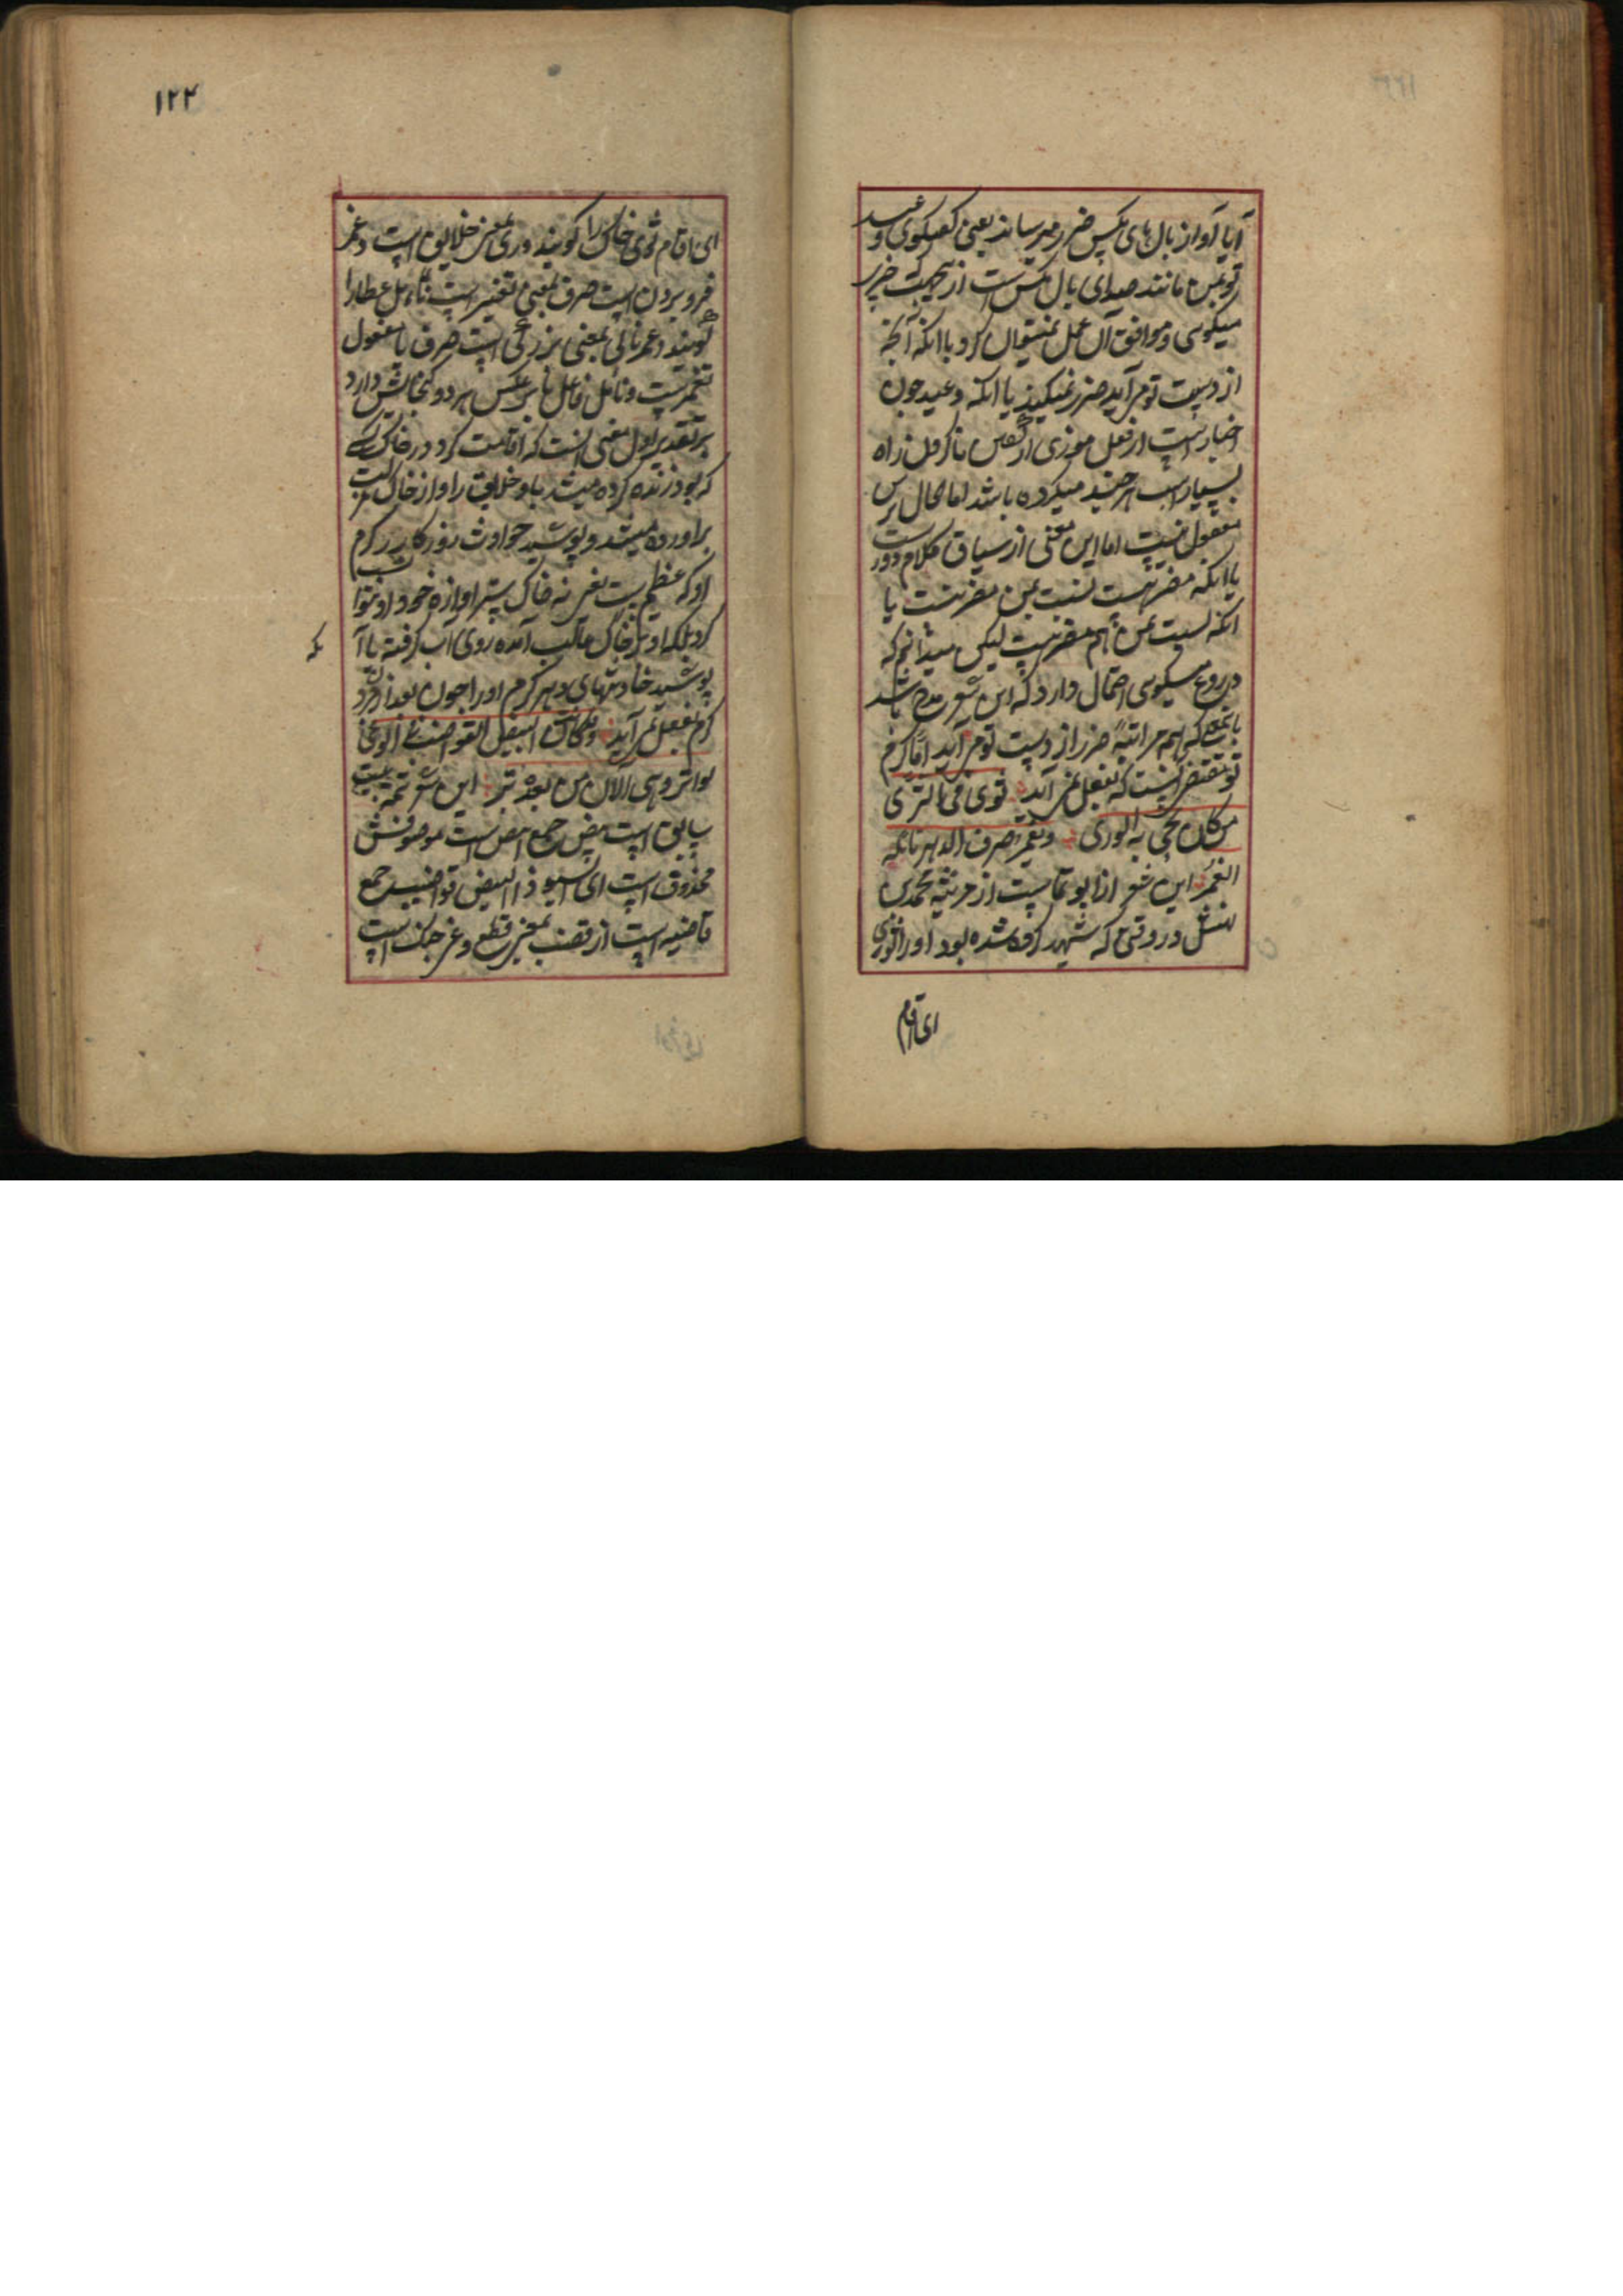 آیا آواز بال های مکس ضرر میرساند یعنی کفتکوی وعید
تو بمن مانند صدای بال مکس است از هیچ جهت ضرر
میکوی و موافق آن عمل نمیتوان کرد یا انکه آنچه
از دست تو می آید ضرر نمیکند یا انکه وعید چون
اخبار است از فعل موذی
بسیار است هر چند میکرده باشد اما محال
معقول نیست اما این معنی از سیاق کلام دور است
یا انکه مضر هست نسبت بمن مضر نیست یا
انکه نسبت بمن هم مضر هست لیکن میدانم که
دروغ میکوی احتمال دارد که این شعر مدح باشد
ضرر از دست تو می آید اما کرم
تو مقتضی انست که بفعل نمی آید ثوی فی الثری
من کان یحیی به الوری ویغمر صرف الدهر نائله
الغمر این شعر از ابو تمام است از مرثیه محمد بن
نهشل در وقتی که شهید شده بود اورا ثوی
ای اقام
۱۲۴
ای اقام ثری خاک را کویند وری بمعنی خلایق است و غمر
فرو بردن است صرف بمعنی تغییر است نائل عطا را
کویند و غمر ثانی بمعنی بزرکی است صرف یا مفعول
یغمر است و نائل فاعل یا بر عکس هر دو کنجایش دارد
بر تقدیر اول معنی انست که اقامت کرد در خاک کسی
که بود زنده کرده میشد باو خلایق را و از خاک
براورده میشد و پوشید حوادث روزکار را کرم
او که عظیم است یعنی نه خاک ستر اوازه خود او
کرد بلکه او بر خاک غالب آمده روی آب کرفته یا آنکه
پوشید حادثهای دهر کرم او را چون بعد از مردن
کرم بفعل نمی آید وقد کانت البیض القواضب فی الوغی
بواتر وهی الآن من بعده بتر این شعر تتمه بیت
سابق است بیض جمع ابیض است موصوفش
محذوف است ای السیوف البیض قواضب جمع
قاضبه است از قضب بمعنی قطع وغی جنک است